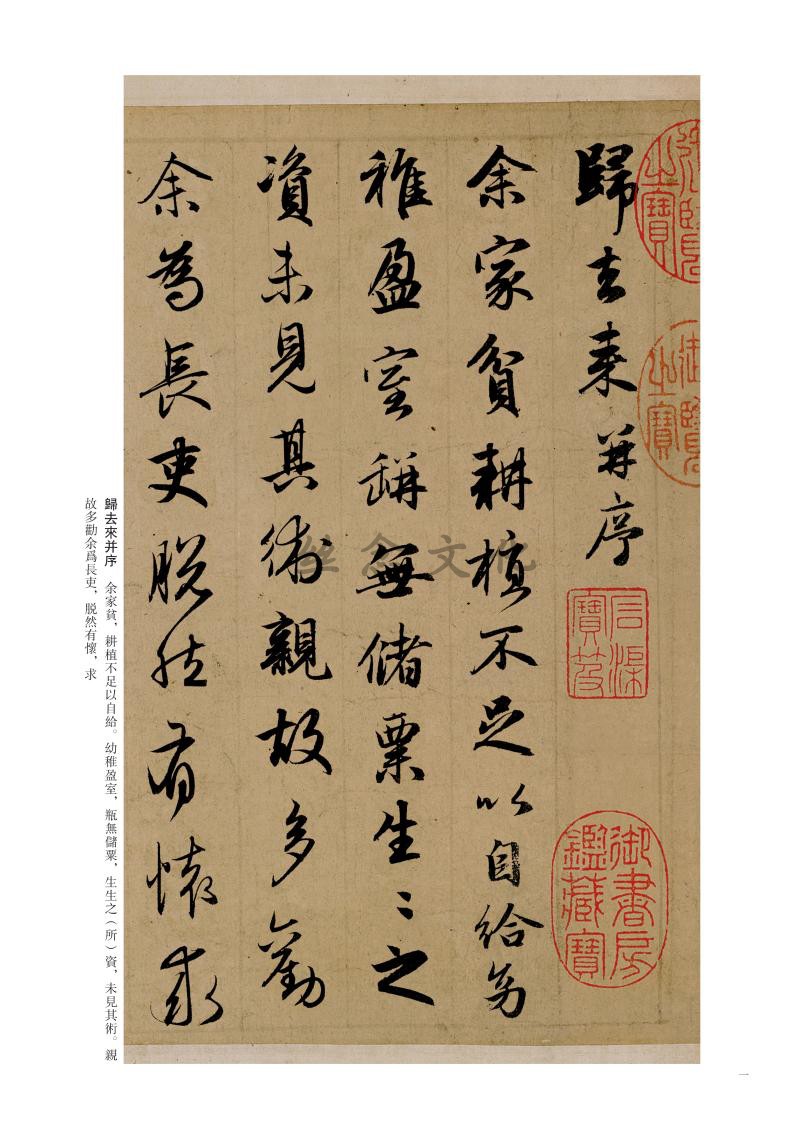 歸去来并序
余家貧耕植不足以自給幼
稚盈室缾無儲粟生〻之
資未見其術親故多勸
余為長吏脫然有懷求
御書房鑑藏寶
石渠寶笈
之寶
之寶
絲念文化
歸去來并序　余家貧，耕植不足以自給。幼稚盈室，瓶無儲粟，生生之（所）資，未見其術。親
故多勸余爲長吏，脱然有懷，求
一